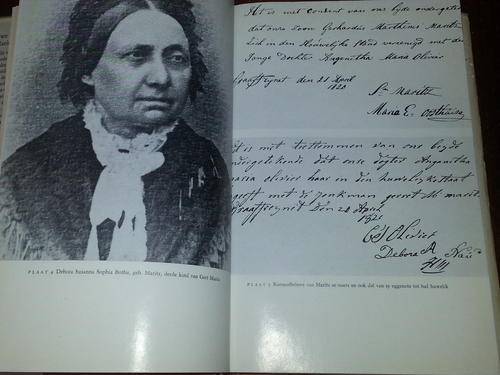 PLAAT 4 Debora Susanna Sophia Botha, geb. Maritz, derde kind van Gert Maritz
Het is met Consent van ons byde ondergetek
dat onze zoon Gerhardus Marthinus Maritz
Sich in den Houwelyke verenigd met de
Jonge Dochter Angenitha Maria Olivier
Graaffreynet den 21 April
1820
Sr Maritz
Maria E. Oosthuize
is met toestemmen van ons beyde
ondergetekende dat onse dogter Angonitha
maria olivier haar in den huwelykstaat
met de Jonkman geert M marit
Graaffreynet den 21 April
1820
Olivier
Debora A
PLAAT 5 Konsentbriewe van Maritz se ouers en ook dié van sy eggenote tot hul huwelik